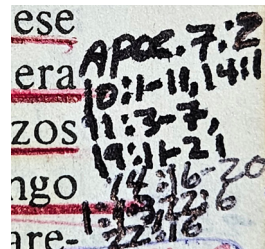 ese
era
zos
ngo
are-
APOC. 7:2
10:1-11, 14:1
11:3-7,
19:11-21
14:16-20
22:16